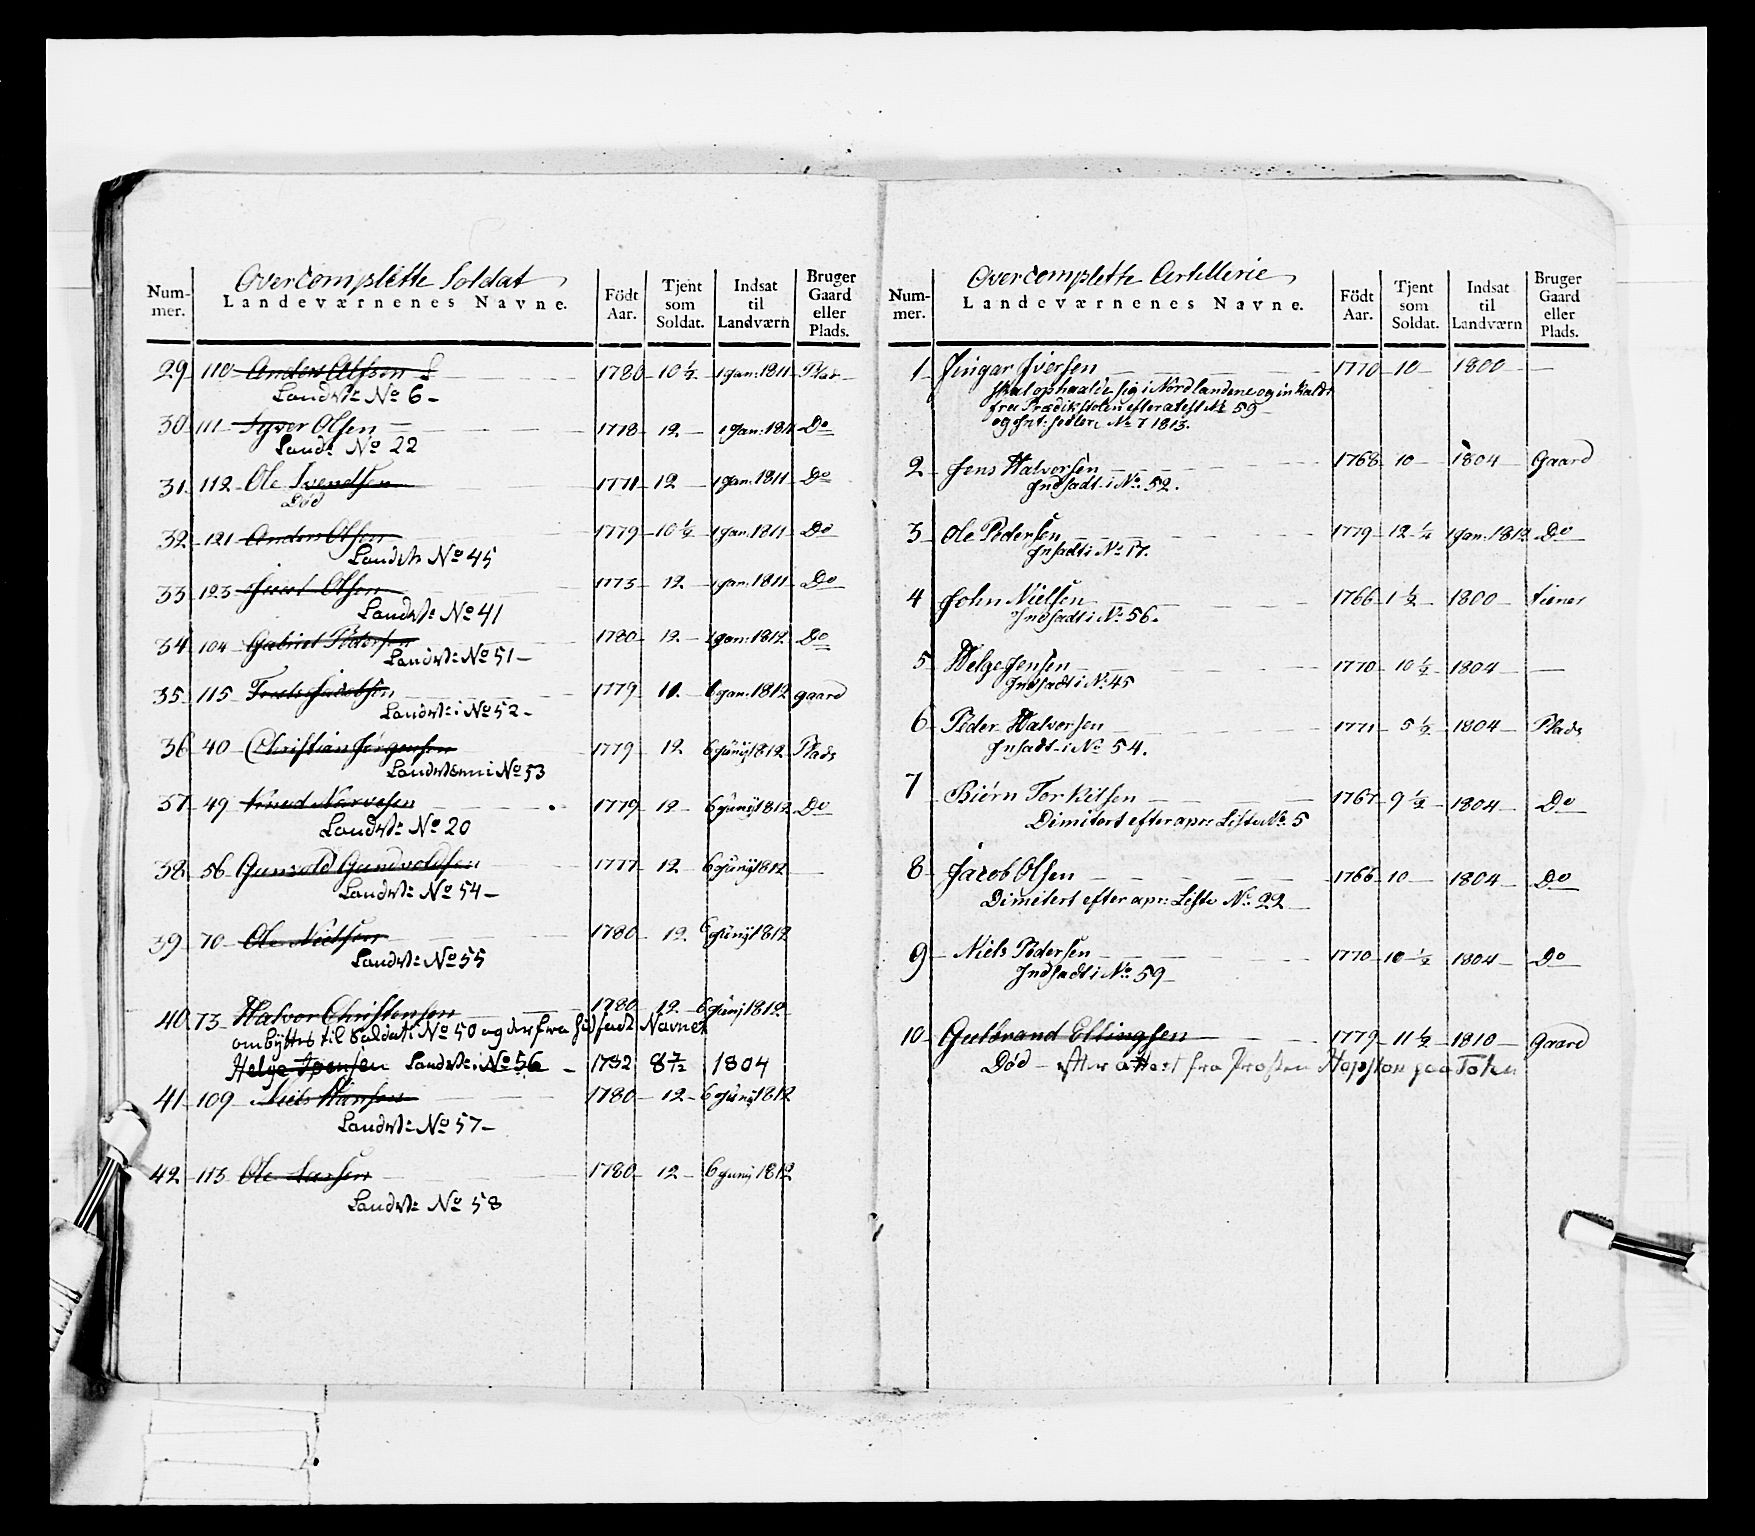 Overcomplette Soldat
Num-mer. Landeværnenes Navne. Födt Aar. Tjent som Soldat. Indsat til Landværn Bruger Gaard eller Plads.
29 110 Anders Olsen 1780 10 ½ 1 Jan: 1811 Plas
Landv: No 6
30 111 Syver Olsen 1778 12 1 Jan: 1811 Do
Landv: No 22
31 112 Ole Svendsen 1771 12 1 Jan: 1811 Do
Död
32 121 Anders Olsen 1779 10 ½ 1 Jan: 1811 Do
Landv: No 45
33 123 Olsen 1773 12 1 Jan: 1811 Do
Landv: No 41
34 104 Gabriel Pedersen 1780 12 1 Jan: 1812 Do
Landv: No 51
35 115 Jacobsen 1779 11 1 Jan: 1812 gaard
Landv: i No 52
36 40 Christian Jörgensen 1779 12 6 Junij 1812 Plads
Landværn i No 53
37 49 Knud Narvesen 1779 12 6 Junij 1812 Do
Landv: No 20
38 56 Gunvold Gundvoldsen 1777 12 6 Junij 1812
Landv: No 54
39 70 Ole Nielsen 1780 12 6 Junij 1812
Landv: No 55
40 73 Halvor Christensen 1780 12 6 Junij 1812
ombyttes til Soldat i No 50 og derfra hidsadt Navnet
Helge Landv: i No 56 1782 8 ½ 1804
41 109 Niels Hansen 1780 12 6 Junij 1812
Landv: No 57
42 113 Ole Larsen 1780 12 6 Junij 1812
Landv: No 58
Overcomplette Artillerie
Num-mer. Landeværnenes Navne. Födt Aar. Tjent som Soldat. Indsat til Landværn Bruger Gaard eller Plads.
1 Ingar Iversen 1770 10 1800
skal ophaalde sig i Nordlandene og inkaldt
fra Prædikstolen efter atest No 59
og No 7 1813.
2 Jens Halvorsen 1768 10 1804 Gaard
Indsadt i No 52.
3 Ole Pedersen 1779 12 ¼ 1 Jan: 1812 Do
Insadt i No 17.
4 John Nielsen 1766 1 ½ 1800 tiener
Indsadt i No 56.
5 Helge Jensen 1770 10 ½ 1804
Indsadt i No 45
6 Peder Halvorsen 1771 5 ½ 1804 Plads
Insadt i No 54.
7 Biörn Torkilsen 1767 9 ½ 1804 Do
Dimitert efter apr: Liste No 5
8 Jacob Olsen 1766 10 1804 Do
Dimitert efter apr: Liste No 22
9 Niels Pedersen 1770 10 ½ 1804 Do
Indsadt i No 59
10 Gulbrand Ellingsen 1779 11 ½ 1810 Gaard
Död - efter attest fra Prosten paa Toten